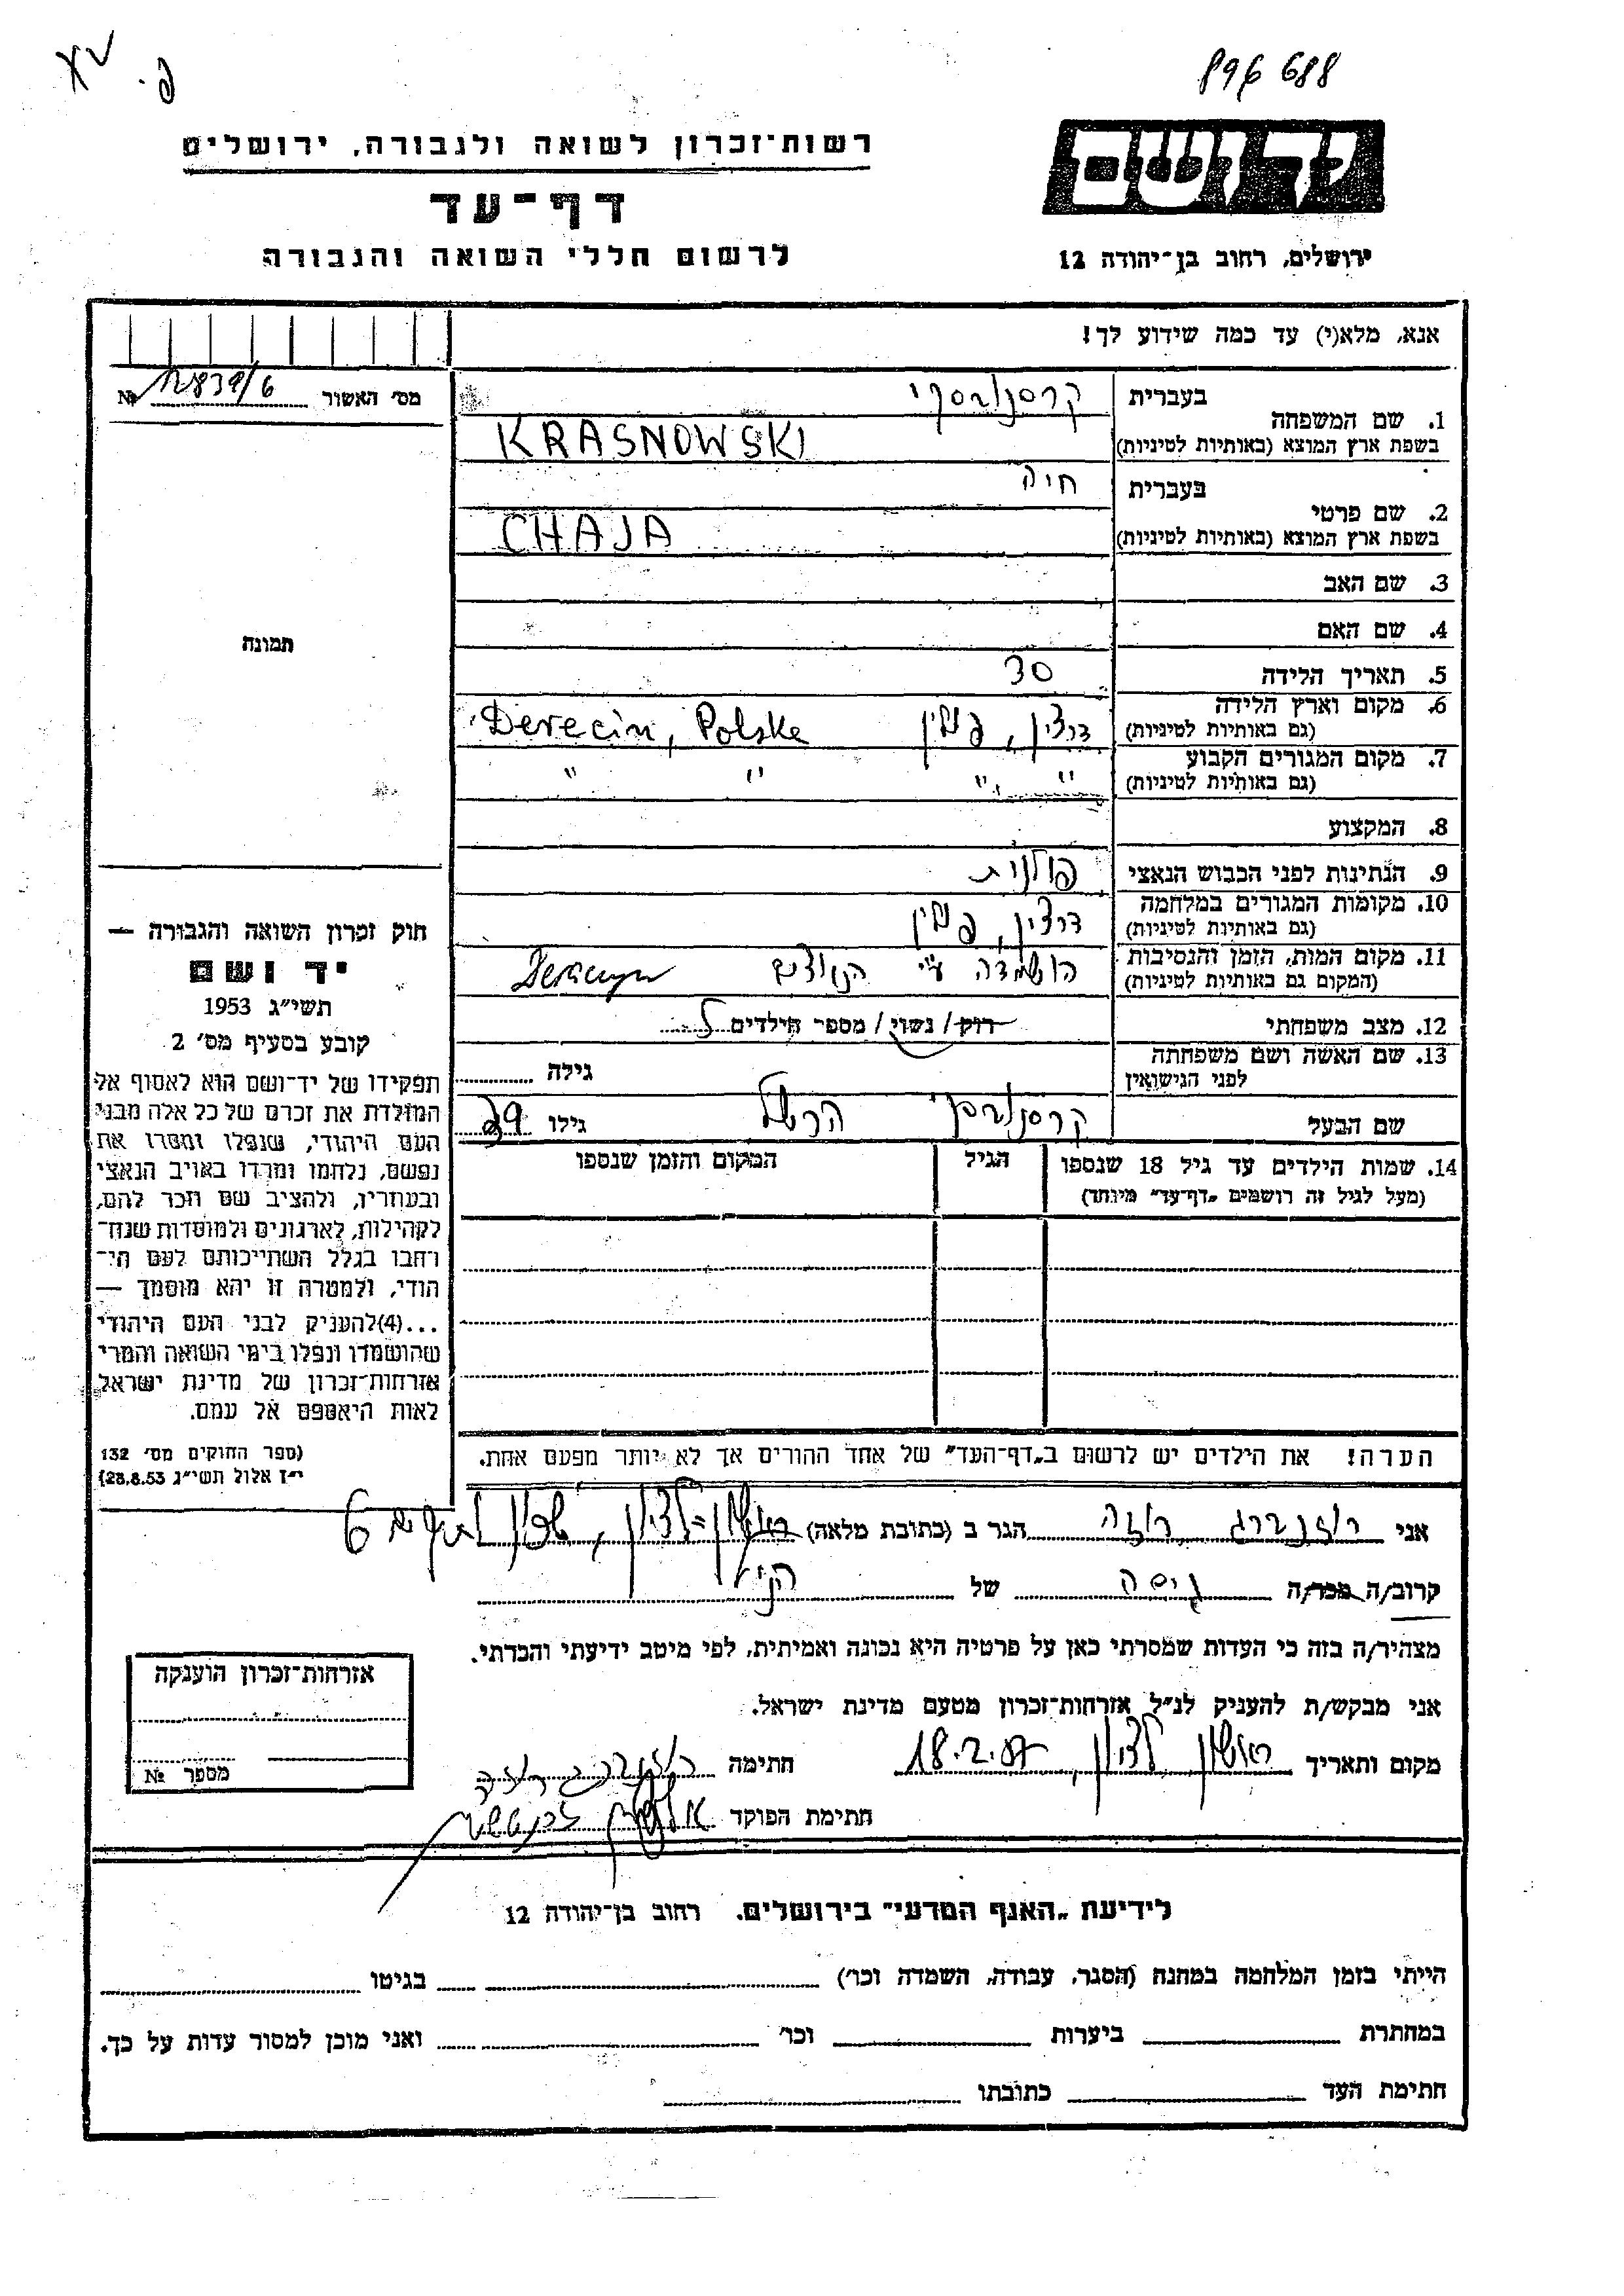 896 688
רשות-זכרון לשואה ולגבורה, ירושלים
דף-עד
לרשום חללי השואה והגבורה
ירושלים, רחוב בן-יהודה 12
אנא, מלא(י) עד כמה שידוע לך!
מס׳ האשור 12839/6 №
בעברית קרסנובסקי
1. שם המשפחה
בשפת ארץ המוצא (באותיות לטיניות) KRASNOWSKI
בעברית חיה
2. שם פרטי
בשפת ארץ המוצא (באותיות לטיניות) CHAJA
3. שם האב
4. שם האם
תמונה
5. תאריך הלידה 30
6. מקום וארץ הלידה
(גם באותיות לטיניות) דרצין, פולין Derecin, Polske
7. מקום המגורים הקבוע
(גם באותיות לטיניות) " " " "
8. המקצוע
9. הנתינות לפני הכבוש הנאצי פולנית
10. מקומות המגורים במלחמה
(גם באותיות לטיניות) דרצין, פולין
11. מקום המות, הזמן והנסיבות
(המקום גם באותיות לטיניות) הושמדה ע״י הנאצים Dereczyn
12. מצב משפחתי רוק/ נשוי/ מספר הילדים
13. שם האשה ושם משפחתה
לפני הנישואין גילה
שם הבעל קרסנובסקי הרשל גילו 39
14. שמות הילדים עד גיל 18 שנספו הגיל המקום והזמן שנספו
(מעל לגיל זה רושמים „דף-עד״ מיוחד)
הערה! את הילדים יש לרשום ב„דף-העד״ של אחד ההורים אך לא יותר מפעם אחת.
חוק זכרון השואה והגבורה —
יד ושם
תשי״ג 1953
קובע בסעיף מס׳ 2
תפקידו של יד-ושם הוא לאסוף אל
המולדת את זכרם של כל אלה מבני
העם היהודי, שנפלו ומסרו את
נפשם, נלחמו ומרדו באויב הנאצי
ובעוזריו, ולהציב שם וזכר להם,
לקהילות, לארגונים ולמוסדות שנח־
רחבו בגלל השתייכותם לעם הי־
הודי, ולמטרה זו יהא מוסמך —
...(4)להעניק לבני העם היהודי
שהושמדו ונפלו בימי השואה והמרי
אזרחות-זכרון של מדינת ישראל
לאות היאספם אל עמם.
(ספר החוקים מס׳ 132
י״ז אלול תשי״ג 28.8.53)
אני רוזנברג רוזה הגר ב (כתובת מלאה) ראשון-לציון, 6
קרוב/ה מכר/ה גיסה של הנ״ל
מצהיר/ה בזה כי העדות שמסרתי כאן על פרטיה היא נכונה ואמיתית, לפי מיטב ידיעתי והכרתי.
אני מבקש/ת להעניק לנ״ל אזרחות-זכרון מטעם מדינת ישראל.
מקום ותאריך ראשון לציון, 18.2.87 חתימה רוזנברג רוזה
חתימת הפוקד
אזרחות-זכרון הוענקה
מספר №
לידיעת „האגף המדעי״ בירושלים. רחוב בן-יהודה 12
הייתי בזמן המלחמה במחנה (הסגר, עבודה, השמדה וכו׳) בגיטו
במחתרת ביערות וכו׳ ואני מוכן למסור עדות על כך.
חתימת העד כתובתו